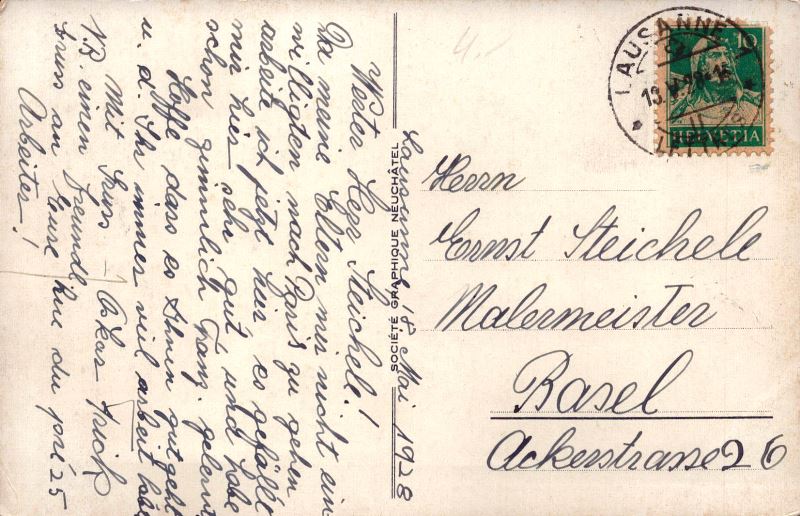 Lausanne, 15 Mai 1928
Werter Herr Steichele!
Da meine Eltern mir nicht ein
willigten nach Paris zu gehen
arbeite ich jetzt hier es gefällt
mir hier sehr gut und habe
schon zimmlich Franz. gelernt
Hoffe dass es Ihnen gut geht
u. d. Ihr immer viel arbeit hät
Mit Gruss
N.B einen freundl.
Gruss an Eure
Arbeiter!
rue du pré 25
SOCIÉTÉ GRAPHIQUE NEUCHÂTEL
4.-
LAUSANNE
10
HELVETIA
Herrn
Ernst Steichele
Malermeister
Basel
Ackerstrasse 26